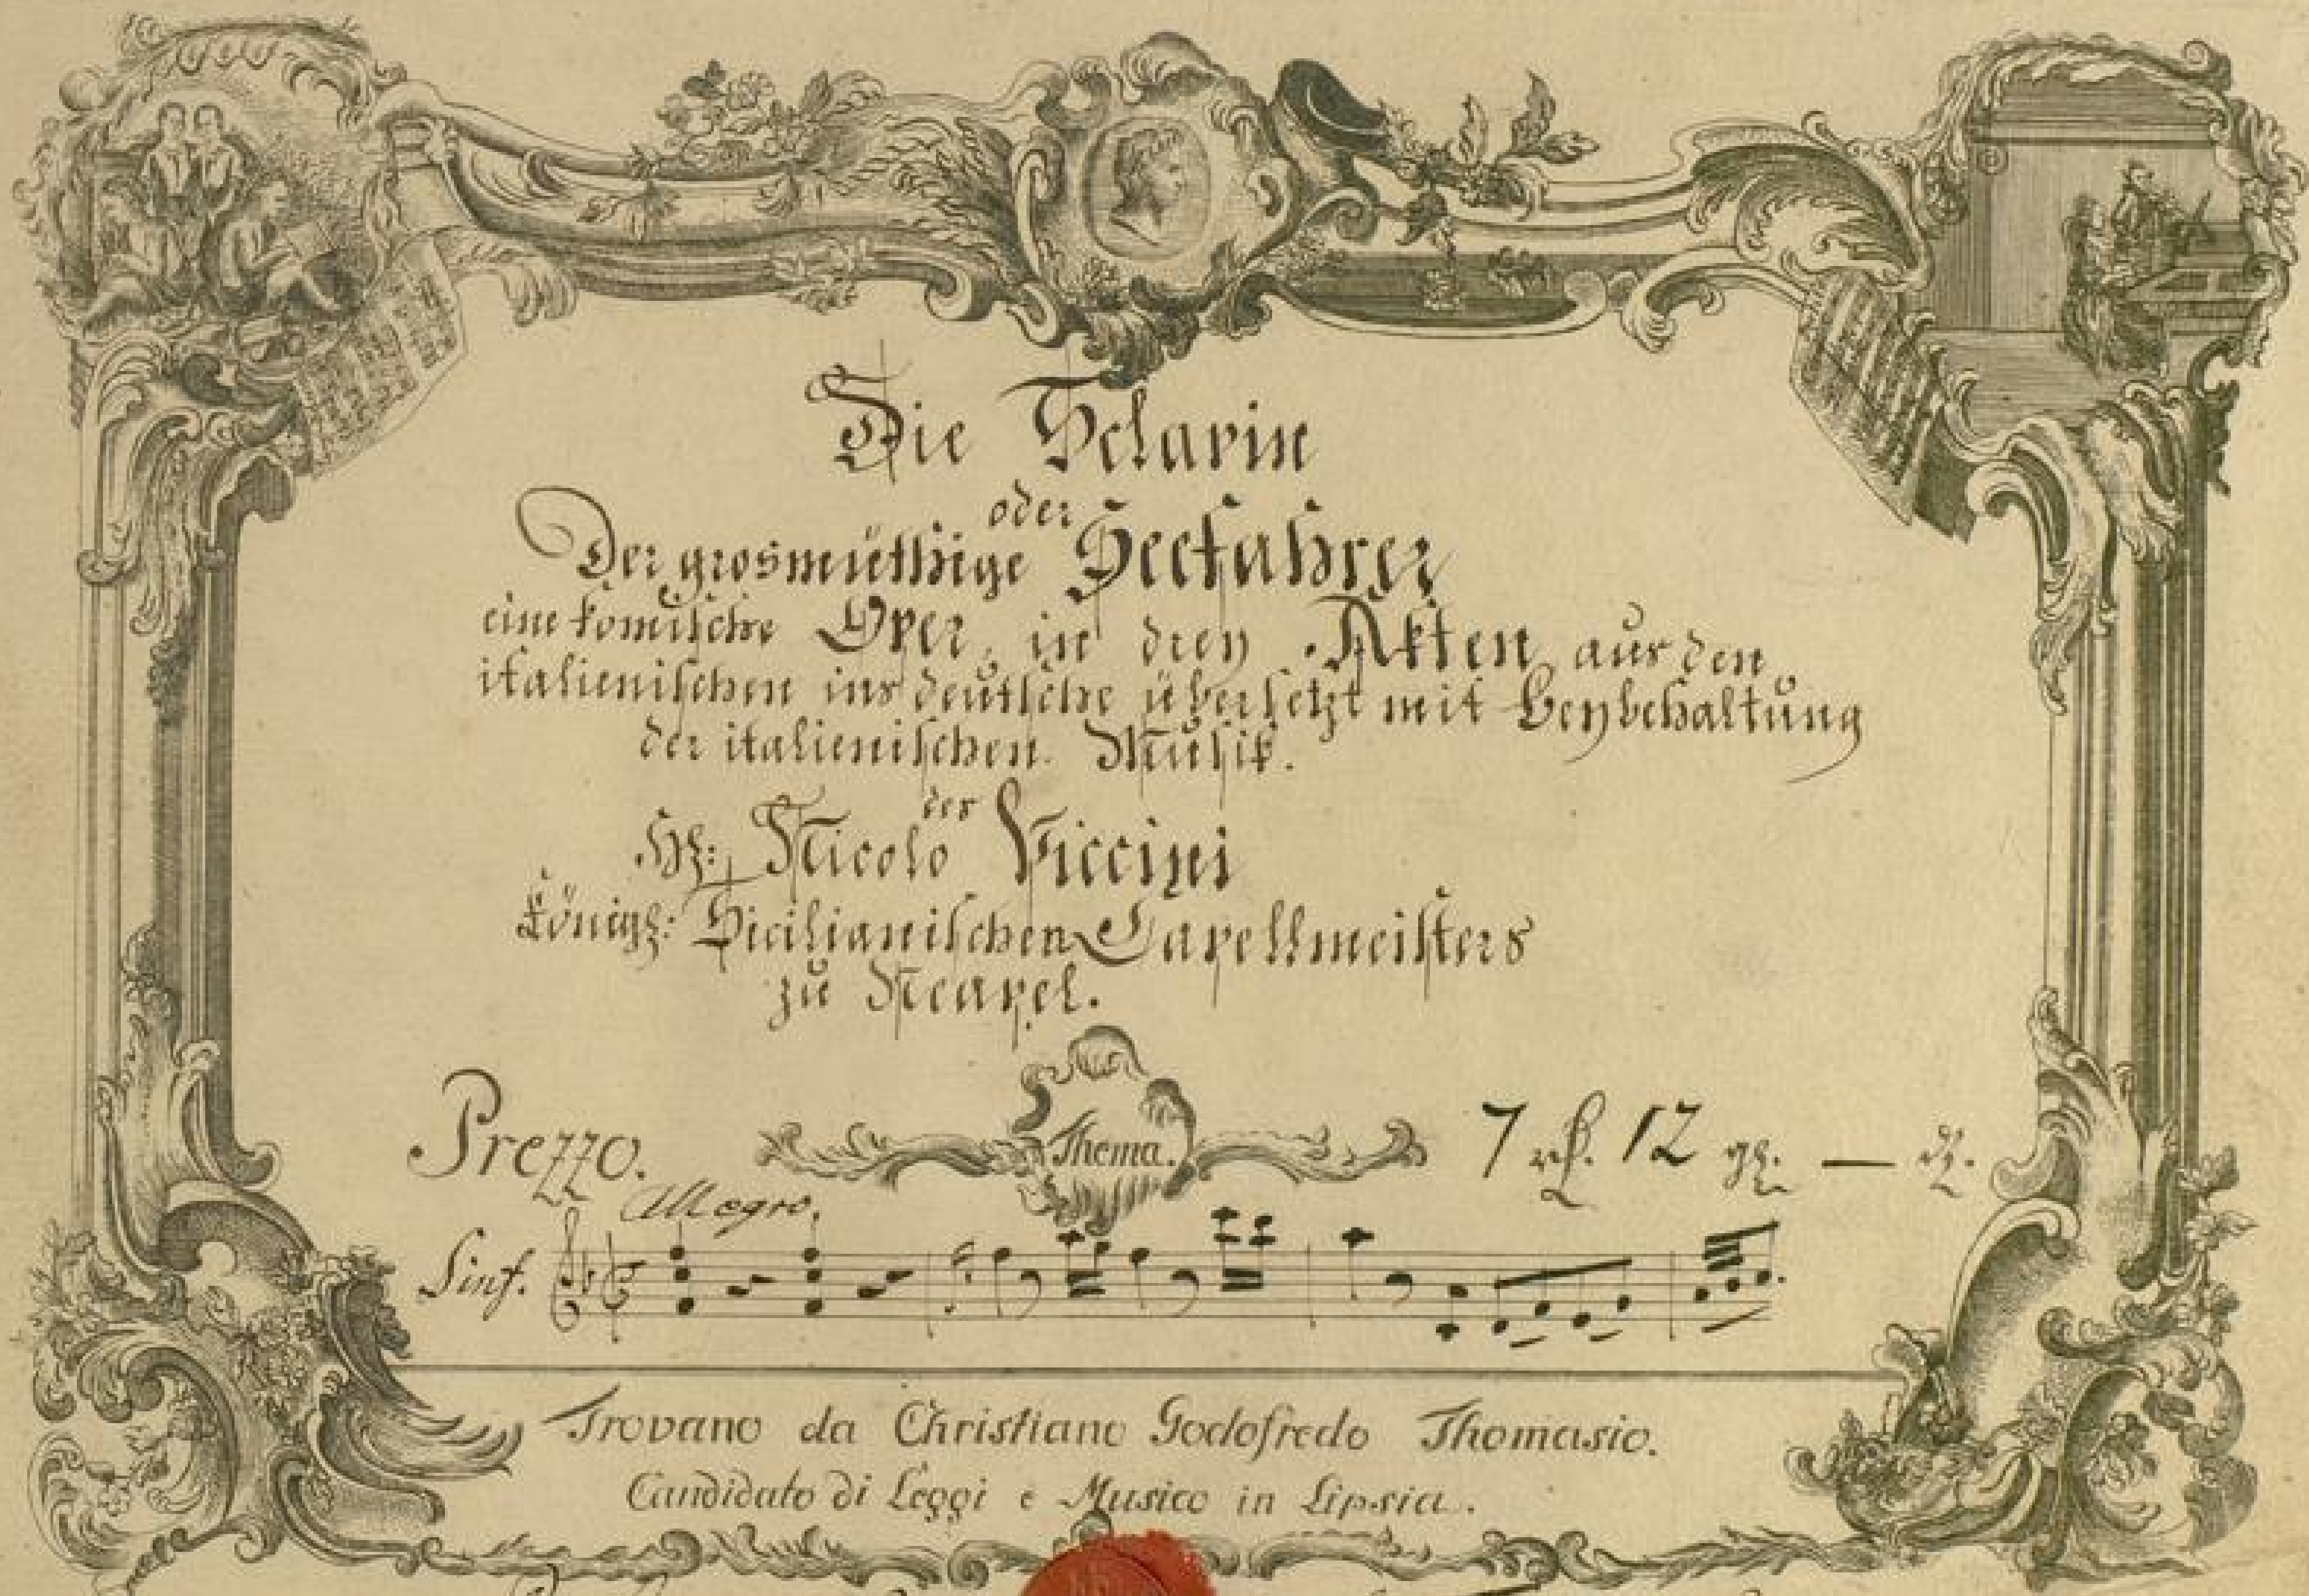 Die Sclavin
oder
Der grosmüthige Seefahrer
eine komische Oper, in drey Akten aus den
italienischen ins deutsche übersetzt mit Beybehaltung
der italienischen Musik.
des
Hr: Nicolo Piccini
Königl: Sicilianischen Capellmeisters
zu Neapel.
Prezzo.
Thema.
7 rl. 12 gr. — d.
Allegro.
Sinf.
Trovano da Christiano Godofredo Thomasio.
Candidato di Leggi e Musico in Lipsia.